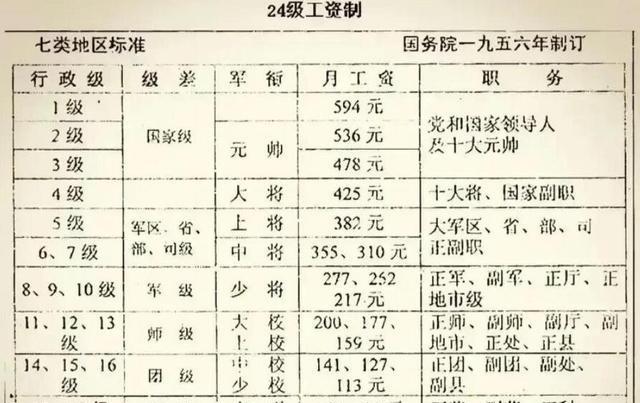 24级工资制
七类地区标准 国务院一九五六年制订
行政级 级差 军衔 月工资 职务
1级 594元
2级 国家级 元帅 536元 党和国家领导人
及十大元帅
3级 478元
4级 大将 425元 十大将、国家副职
5级 军区、省、 上将 382元 大军区、省、部、司
6、7级 部、司级 中将 355、310元 正副职
8、9、10级 军级 少将 277、252 正军、副军、正厅、正
217元 地市级
11、12、13 师级 大校 200、177、 正师、副师、副厅、副
级 上校 159元 地市、正处、正县
14、15、16 团级 中校 141、127、 正团、副团、副处、
级 少校 113元 副县